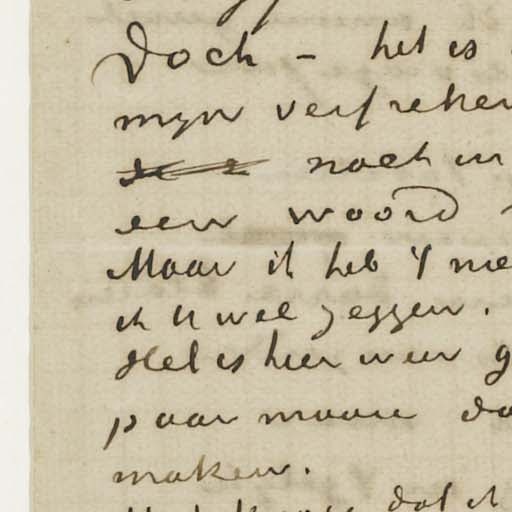 Doch – het is
mijn verfreken
noch in
een woord
Maar ik heb 't
ik U wel zeggen.
Het is hier weer
paar mooie
maken.
dat ik